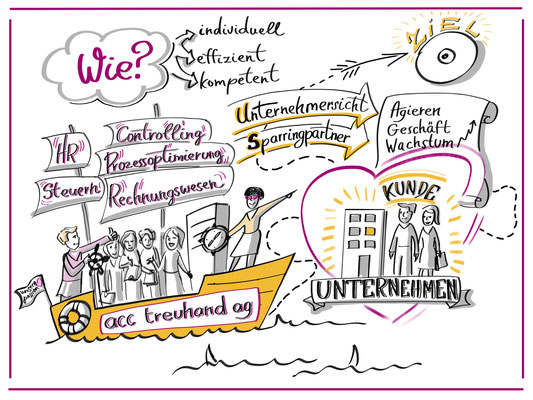 Wie?
individuell
effizient
kompetent
ZiEL
Unternehmersicht
Sparringpartner
Agieren
Geschäft
Wachstum
HR
Steuern
Controlling
Prozessoptimierung
Rechnungswesen
KUNDE
UNTERNEHMEN
acc treuhand ag